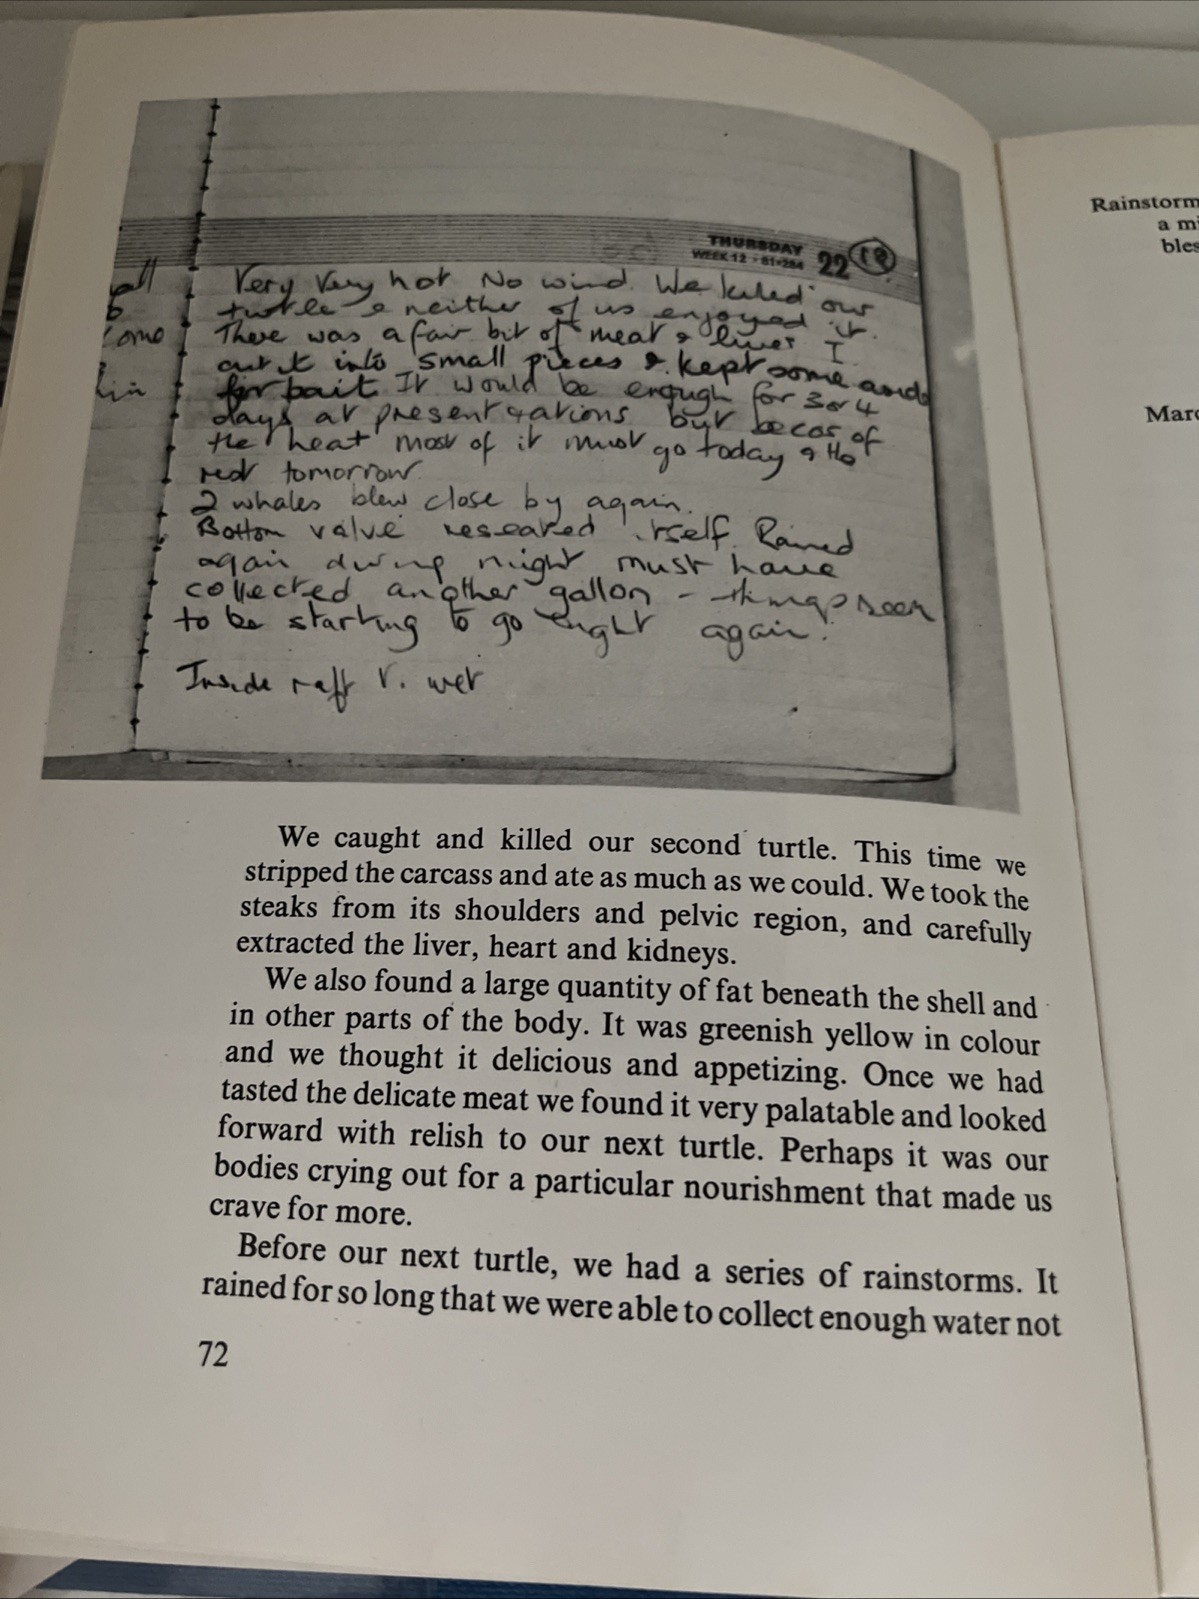 THURSDAY
WEEK 12 · 81·284 22 18
all Very Very hot No wind. We killed our
turtle & neither of us enjoyed it.
ome There was a fair bit of meat & liver I
cut it into small pieces & kept some
for bait It would be enough for 3 or 4
days at present rations but becos of
the heat most of it must go today & the
rest tomorrow.
2 whales blew close by again.
Bottom valve resealed itself. Rained
again during night must have
collected another gallon - things seem
to be starting to go right again.
Inside raft v. wet
We caught and killed our second turtle. This time we
stripped the carcass and ate as much as we could. We took the
steaks from its shoulders and pelvic region, and carefully
extracted the liver, heart and kidneys.
We also found a large quantity of fat beneath the shell and
in other parts of the body. It was greenish yellow in colour
and we thought it delicious and appetizing. Once we had
tasted the delicate meat we found it very palatable and looked
forward with relish to our next turtle. Perhaps it was our
bodies crying out for a particular nourishment that made us
crave for more.
Before our next turtle, we had a series of rainstorms. It
rained for so long that we were able to collect enough water not
72
Rainstorm
a m
bles
Marc